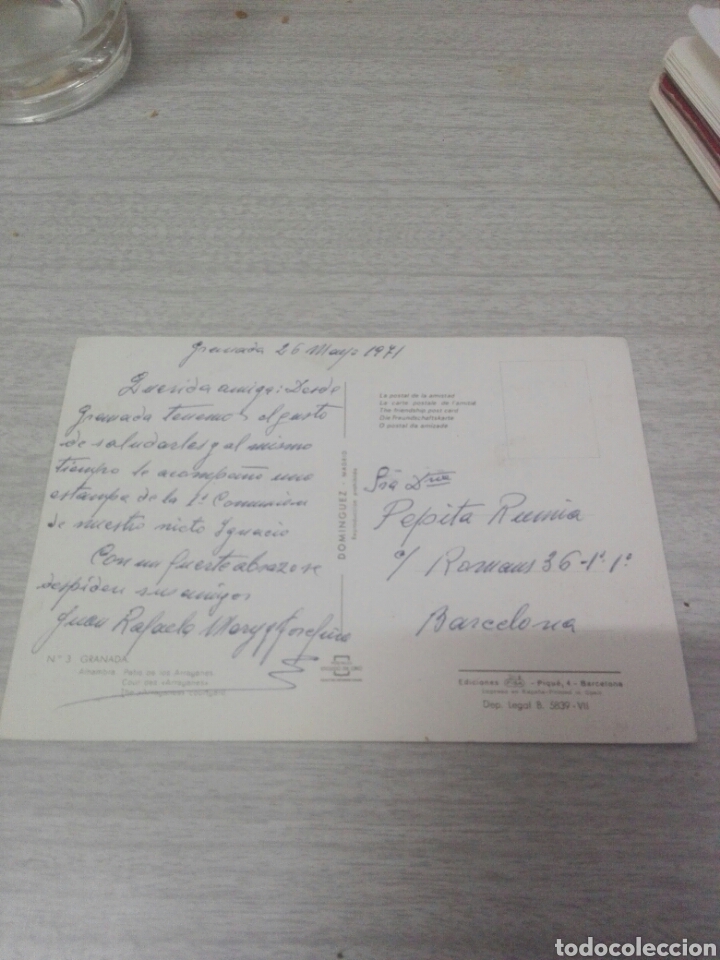 Granada 26 Mayo 1971
Querida amiga: Desde
Granada tenemos el gusto
de saludarles y al mismo
tiempo le acompaño una
estampa de la 1ª Comunión
de nuestro nieto Ignacio
Con un fuerte abrazo se
despiden sus amigos
Juan Rafaela Mary y Josefina
Nº 3 GRANADA
Alhambra. Patio de los Arrayanes
Cour des «Arrayanes»
DOMINGUEZ - MADRID
Reproducción prohibida
La postal de la amistad
La carte postale de l'amitié
The friendship post card
Die Freundschaftskarte
O postal da amizade
Sra Dña
Pepita Rumia
c/ Romans 36-1º 1ª
Barcelona
Ediciones - Piqué, 4 - Barcelona
Impreso en España - Printed in Spain
Dep. Legal B. 5839-VII
todocoleccion